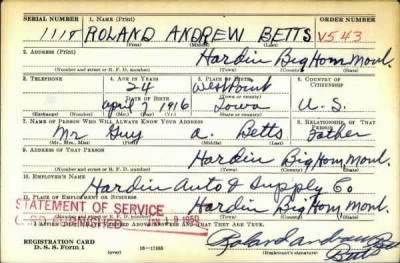 SERIAL NUMBER 1. NAME (Print) ORDER NUMBER
1118 ROLAND ANDREW BETTS V543
(First) (Middle) (Last)
2. ADDRESS (Print)
Hardin Big Horn Mont.
(Number and street or R. F. D. number) (Town) (County) (State)
3. TELEPHONE 4. AGE IN YEARS 5. PLACE OF BIRTH 6. COUNTRY OF CITIZENSHIP
24 West Point
DATE OF BIRTH (Town or county)
April 7 1916 Iowa U. S.
(Mo.) (Day) (Yr.) (State or country)
7. NAME OF PERSON WHO WILL ALWAYS KNOW YOUR ADDRESS 8. RELATIONSHIP OF THAT PERSON
Mr Guy A. Betts Father
(Mr., Mrs., Miss) (First) (Middle) (Last)
9. ADDRESS OF THAT PERSON
Hardin Big Horn Mont.
(Number and street or R. F. D. number) (Town) (County) (State)
10. EMPLOYER'S NAME
Hardin Auto & Supply Co
11. PLACE OF EMPLOYMENT OR BUSINESS
Hardin Big Horn Mont.
(Number and street or R. F. D. number) (Town) (County) (State)
STATEMENT OF SERVICE
ANSWERS AND THAT THEY ARE TRUE.
REGISTRATION CARD
D. S. S. Form 1
Roland Andrew Betts
(Registrant's signature)